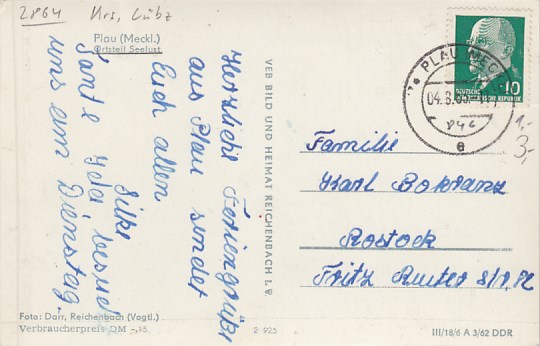 2864 Krs. Lübz
Plau (Meckl.)
Ortsteil Seelust
Herzliche Feriengrüße
aus Plau sendet
Euch allen
Silke
Tante Hela besucht
uns am Dienstag.
VEB BILD UND HEIMAT REICHENBACH I. V.
PLAU (MECKL)
04.8.
846
e
10
DEUTSCHE
DEMOKRATISCHE REPUBLIK
1,-
3,-
Familie
Karl Bokranz
Rostock
Fritz Reuter
Foto: Darr, Reichenbach (Vogtl.)
Verbraucherpreis DM -,15
2 925
III/18/6 A 3/62 DDR